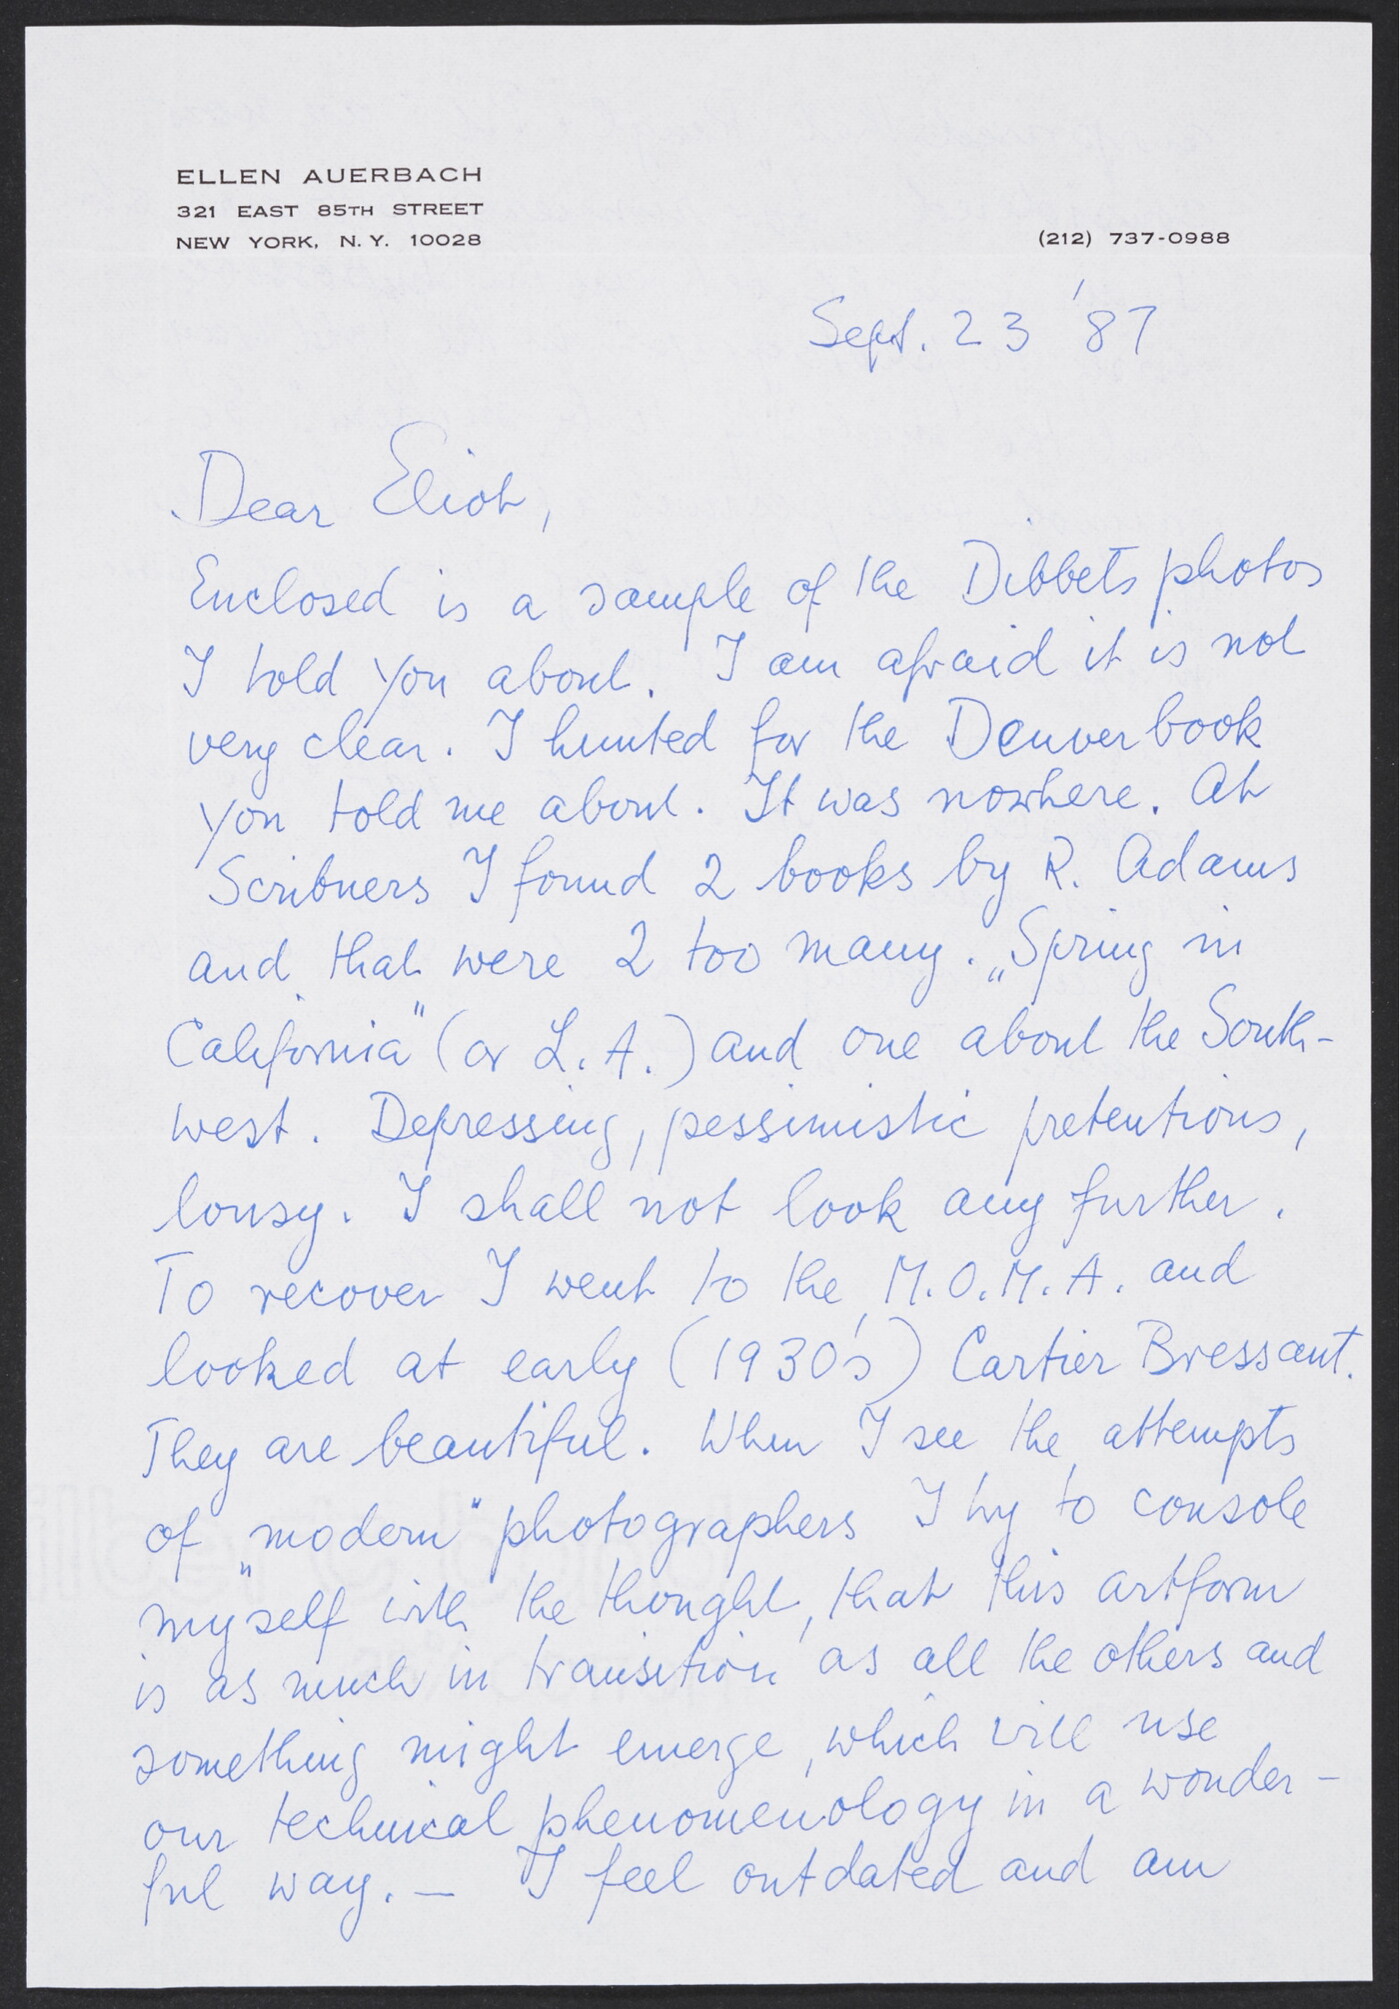 ELLEN AUERBACH
321 EAST 85TH STREET
NEW YORK, N.Y. 10028
(212) 737-0988
Sept. 23 '87
Dear Eliot,
Enclosed is a sample of the Dibbets photos
I told you about. I am afraid it is not
very clear. I hunted for the Denver book
you told me about. It was nowhere. At
Scribners I found 2 books by R. Adams
and that were 2 too many. „Spring in
California" (or L.A.) and one about the South-
west. Depressing, pessimistic pretentious,
lousy. I shall not look any further.
To recover I went to the M.O.M.A. and
looked at early (1930's) Cartier Bressant.
They are beautiful. When I see the attempts
of „modern" photographers I try to console
myself with the thought, that this artform
is as much in transition as all the others and
something might emerge, which will use
our technical phenomenology in a wonder-
ful way. — I feel outdated and am